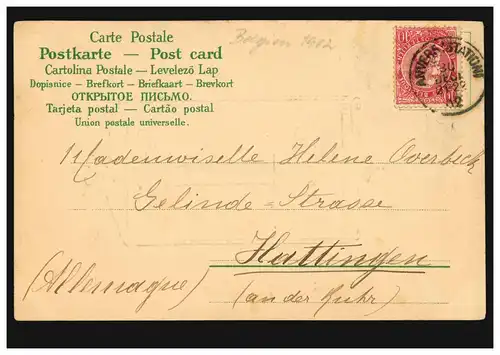 Carte Postale
Postkarte — Post card
Cartolina Postale — Levelező Lap
Dopisnice — Brefkort — Briefkaart — Brevkort
ОТКРЫТОЕ ПИСЬМО.
Tarjeta postal — Cartão postal
Union postale universelle.
Belgien 1902
Madenwiselle Helene Overbeck
Gelinde-Strasse
Hattingen
(Allemagne)
(an der Ruhr)